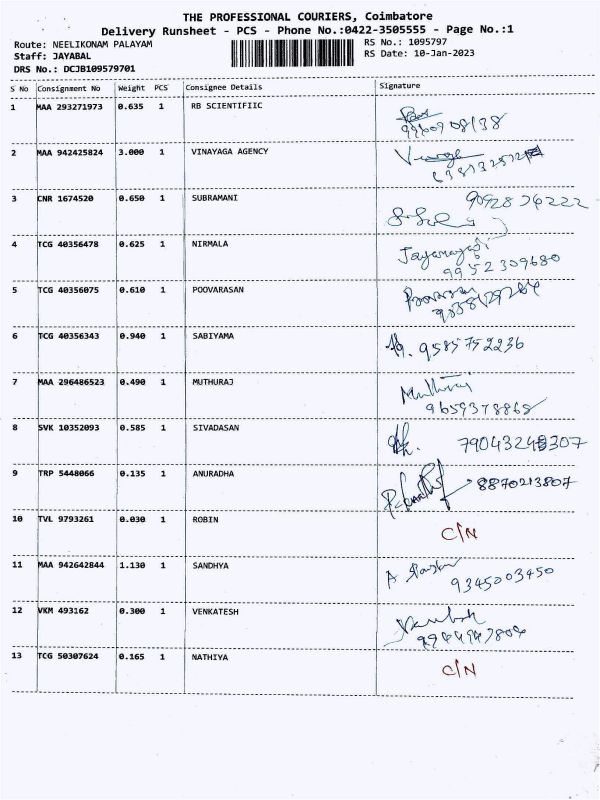 THE PROFESSIONAL COURIERS, Coimbatore
Delivery Runsheet - PCS - Phone No.:0422-3505555 - Page No.:1
Route: NEELIKONAM PALAYAM
RS No.: 1095797
Staff: JAYABAL
RS Date: 10-Jan-2023
DRS No.: DCJB109579701
S No Consignment No Weight PCS Consignee Details Signature
1 MAA 293271973 0.635 1 RB SCIENTIFIIC
2 MAA 942425824 3.000 1 VINAYAGA AGENCY
3 CNR 1674520 0.650 1 SUBRAMANI
9092874222
4 TCG 40356478 0.625 1 NIRMALA
9952309680
5 TCG 40356075 0.610 1 POOVARASAN Poovarasan
6 TCG 40356343 0.940 1 SABIYAMA 9585752236
7 MAA 296486523 0.490 1 MUTHURAJ Muthuraj
9659378868
8 SVK 10352093 0.585 1 SIVADASAN
9 TRP 5448066 0.135 1 ANURADHA 8870213807
10 TVL 9793261 0.030 1 ROBIN C/N
11 MAA 942642844 1.130 1 SANDHYA
9345003450
12 VKM 493162 0.300 1 VENKATESH
13 TCG 50307624 0.165 1 NATHIYA C/N